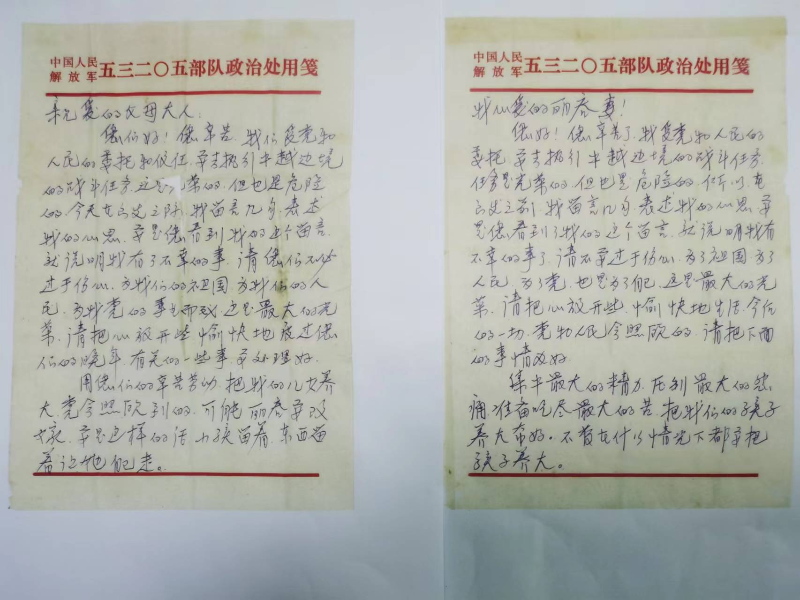 中国人民
解放军 五三二〇五部队政治处用笺
亲爱的父母大人:
您们好!您辛苦,我们受党和
人民的委托和仅任,要去执行中越边境
的战斗任务,这是 荣的,但也是危险
的,今天在 之际,我留言几句,表达
我的心思,要是您看到我的这个留言,
就说明我有了不幸的事,请您们不必
过于伤心,为我们的祖国,为我们的人
民,为我党的事 而 ,这是最大的光
荣,请把心放开些,愉快地度过您
们的晚年,有关的一些事,要处理好。
用您们的辛苦劳动,把我的儿女养
大,党会照顾到的,可能丽春要改
嫁,要是这样的话,小孩留着,东西留
着,让她自己走。
中国人民
解放军 五三二〇五部队政治处用笺
我心爱的丽春 !
您好!您辛苦了,我受党和人民的
委托,要去执行中越边境的战斗任务,
任务是光荣的,但也是危险的,所以,在
之别,我留言几句,表达我的心思,要
是您看到了我的这个留言,就说明我有
不幸的事了,请不要过于伤心,为了祖国,为了
人民,为了党,也是为了自己,这是最大的光
荣,请把心放开些,愉快地生活,今后
的一切,党和人民会照顾的,请把下面
的事情做好:
集中最大的精力,压制最大的悲
痛,准备吃尽最大的苦,把我们的孩子
养大带好。不管在什么情况下都要把
孩子养大。